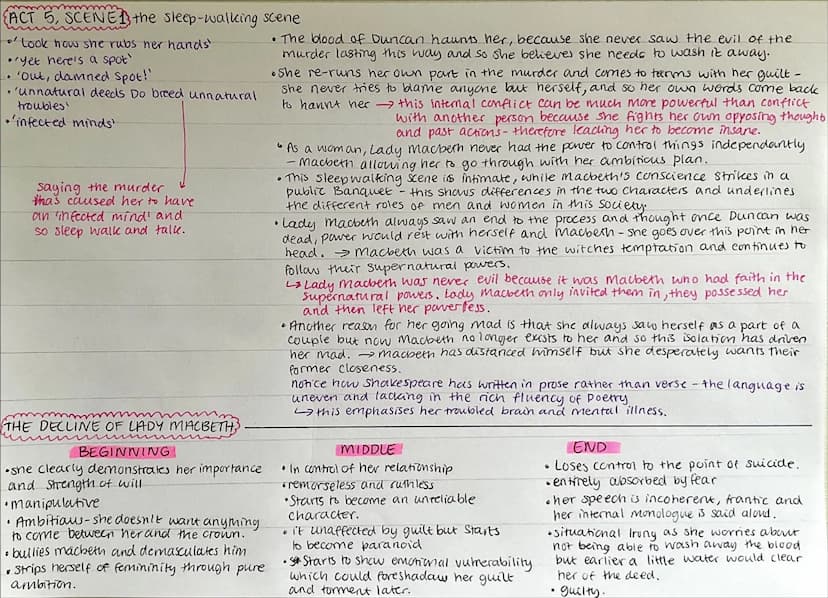 ACT 5, SCENE 1 the sleep-walking scene
• 'Look how she rubs her hands'
• 'Yet here's a spot'
• 'Out, damned spot!'
• 'unnatural deeds Do breed unnatural
troubles'
• 'infected minds'
saying the murder
has caused her to have
an 'infected mind' and
so sleep walk and talk.
• The blood of Duncan haunts her, because she never saw the evil of the
murder lasting this way and so she believes she needs to wash it away.
• She re-runs her own part in the murder and comes to terms with her guilt -
she never tries to blame anyone but herself, and so her own words come back
to haunt her → this internal conflict can be much more powerful than conflict
with another person because she fights her own opposing thought
and past actions - therefore leading her to become insane.
• As a woman, Lady Macbeth never had the power to control things independantly
- Macbeth allowing her to go through with her ambitious plan.
• This sleepwalking scene is intimate, while Macbeth's conscience strikes in a
public Banquet - this shows differences in the two characters and underlines
the different roles of men and women in this society.
• Lady Macbeth always saw an end to the process and thought once Duncan was
dead, power would rest with herself and Macbeth - she goes over this point in her
head. → Macbeth was a victim to the witches temptation and continues to
follow their supernatural powers.
↳ Lady Macbeth was never evil because it was Macbeth who had faith in the
supernatural powers. Lady Macbeth only invited them in, they possessed her
and then left her powerless.
• Another reason for her going mad is that she always saw herself as a part of a
couple but now Macbeth no longer exists to her and so this isolation has driven
her mad. → Macbeth has distanced himself but she desperately wants their
former closeness.
notice how Shakespeare has written in prose rather than verse - the language is
uneven and lacking in the rich fluency of poetry
↳ this emphasises her troubled brain and mental illness.
THE DECLINE OF LADY MACBETH
BEGINNING
• she clearly demonstrates her importance
and strength of will
• manipulative
• Ambitious - she doesn't want anything
to come between her and the crown.
• bullies macbeth and demasculates him
• strips herself of femininity through pure
ambition.
MIDDLE
• In control of her relationship
• remorseless and ruthless
• Starts to become an unreliable
character.
• it unaffected by guilt but starts
to become paranoid
• Starts to show emotional vulnerability
which could foreshadow her guilt
and torment later.
END
• Loses control to the point of suicide.
• entirely absorbed by fear
• her speech is incoherent, frantic and
her internal monologue is said aloud.
• situational irony as she worries about
not being able to wash away the blood
but earlier a little water would clear
her of the deed.
• guilty.